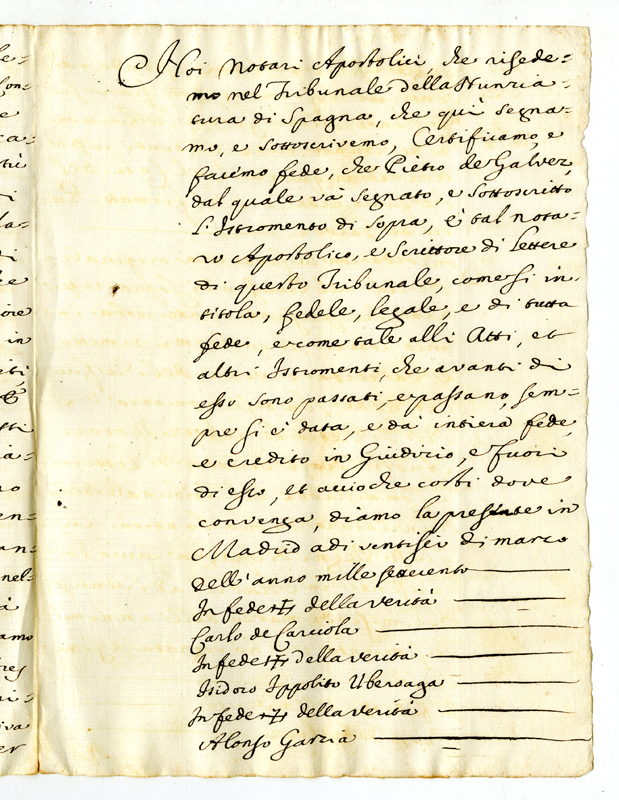 Noi Notari Apostolici, che risede=
mo nel Tribunale della Nunzia=
tura di Spagna, che quì segna=
mo, e sottoscrivemo, Certificamo, e
facémo fede, che Pietro de Galvez,
dal quale và segnato, e sottoscritto
l'Istromento di sopra, è tal nota=
ro Apostolico, e Scrittore di lettere
di questo Tribunale, come si in=
titola, fedele, legale, e di tutta
fede, e come tale alli Atti, et
altri Istromenti, che avanti di
esso sono passati, e passano, sem=
pre si è data, e dà intiera fede,
e credito in Giudizio, e fuori
di esso, et acciò che costi dove
convenga, diamo la presente in
Madrid adi ventisei di marzo
dell'anno mille settecento
In fede della verità
Carlo de
In fede della verità
Isidoro Ippolito Ubersaga
In fede della verità
Alonso Garcia
ore
in
amo
iva